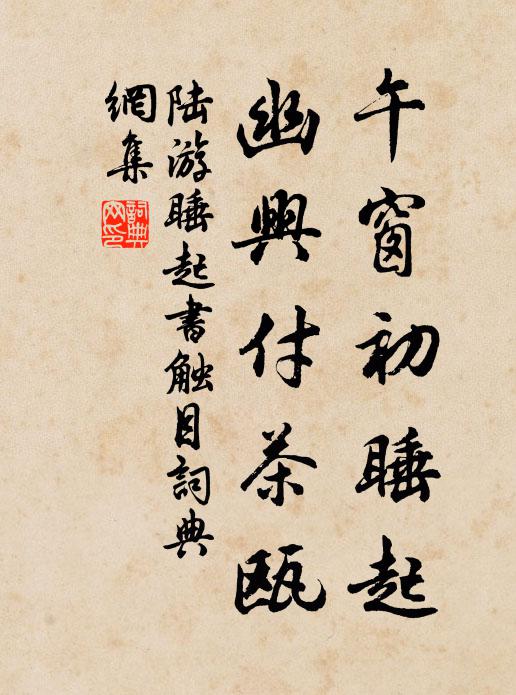 午窗初睡起
幽興付茶甌
陆游睡起書触目詞典
網集
詞典
网印